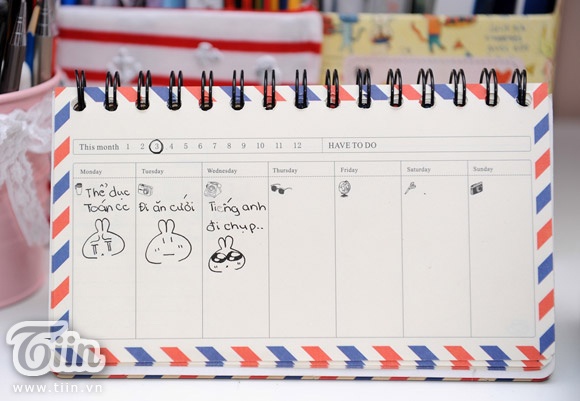 This month 1 2 3 4 5 6 7 8 9 10 11 12 HAVE TO DO
Monday Tuesday Wednesday Thursday Friday Saturday Sunday
Thể dục
Toán cc Đi ăn cưới Tiếng anh
đi chụp..
Tiin
www.tiin.vn